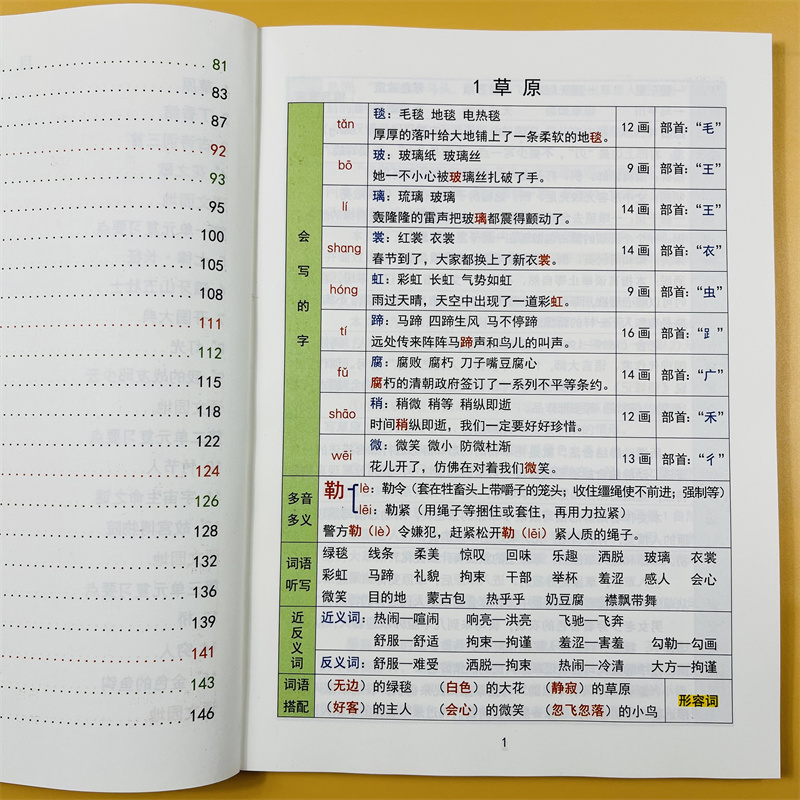 81
83
87
92
93
95
100
105
108
111
112
115
118
122
124
126
128
132
136
139
141
143
146
1 草 原
会写的字
tǎn
毯：毛毯 地毯 电热毯
厚厚的落叶给大地铺上了一条柔软的地毯。
12 画
部首：“毛”
bō
玻：玻璃纸 玻璃丝
她一不小心被玻璃丝扎破了手。
9 画
部首：“王”
lí
璃：琉璃 玻璃
轰隆隆的雷声把玻璃都震得颤动了。
14 画
部首：“王”
shang
裳：红裳 衣裳
春节到了，大家都换上了新衣裳。
14 画
部首：“衣”
hóng
虹：彩虹 长虹 气势如虹
雨过天晴，天空中出现了一道彩虹。
9 画
部首：“虫”
tí
蹄：马蹄 四蹄生风 马不停蹄
远处传来阵阵马蹄声和鸟儿的叫声。
16 画
部首：“⻊”
fǔ
腐：腐败 腐朽 刀子嘴豆腐心
腐朽的清朝政府签订了一系列不平等条约。
14 画
部首：“广”
shāo
稍：稍微 稍等 稍纵即逝
时间稍纵即逝，我们一定要好好珍惜。
12 画
部首：“禾”
wēi
微：微笑 微小 防微杜渐
花儿开了，仿佛在对着我们微笑。
13 画
部首：“彳”
多音
多义
勒
lè：勒令（套在牲畜头上带嚼子的笼头；收住缰绳使不前进；强制等）
lēi：勒紧（用绳子等捆住或套住，再用力拉紧）
警方勒（lè）令嫌犯，赶紧松开勒（lēi）紧人质的绳子。
词语
听写
绿毯 线条 柔美 惊叹 回味 乐趣 洒脱 玻璃 衣裳
彩虹 马蹄 礼貌 拘束 干部 举杯 羞涩 感人 会心
微笑 目的地 蒙古包 热乎乎 奶豆腐 襟飘带舞
近反义词
近义词：热闹—喧闹 响亮—洪亮 飞驰—飞奔
舒服—舒适 拘束—拘谨 羞涩—害羞 勾勒—勾画
反义词：舒服—难受 洒脱—拘束 热闹—冷清 大方—拘谨
词语
搭配
（无边）的绿毯 （白色）的大花 （静寂）的草原
（好客）的主人 （会心）的微笑 （忽飞忽落）的小鸟
形容词
1